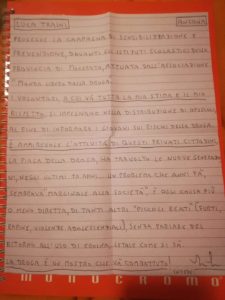 LUCA TRAINI ANCONA
PROSEGUE LA CAMPAGNA DI SENSIBILIZZAZIONE E
PREVENZIONE, DAVANTI GLI ISTITUTI SCOLASTICI DELLA
PROVINCIA DI MACERATA, ATTUATA DALL'ASSOCIAZIONE
"MONDO LIBERO DALLA DROGA".
I VOLONTARI, A CUI VÀ TUTTA LA MIA STIMA E IL MIO
RISPETTO, SI IMPEGNANO NELLA DISTRIBUZIONE DI OPUSCOLI,
AL FINE DI INFORMARE I GIOVANI SUI RISCHI DELLA DROGA.
È AMMIREVOLE L'ATTIVITÀ DI QUESTI PRIVATI CITTADINI.
LA PIAGA DELLA DROGA, HA TRAVOLTO LE NUOVE GENERA-
ZIONI, NEGLI ULTIMI 10 ANNI. UN PROBLEMA CHE ANNI FÀ,
SEMBRAVA "MARGINALE ALLA SOCIETÀ", È OGGI CAUSA PIÙ
O MENO DIRETTA, DI TANTI ALTRI "PICCOLI REATI" (FURTI,
RAPINE, VIOLENZE ADOLESCENZIALI), SENZA PARLARE DEL
RITORNO ALL'USO DI EROINA, LETALE COME SI SÀ.
LA DROGA È UN MOSTRO CHE VÀ COMBATTUTO!
MONOCROMO